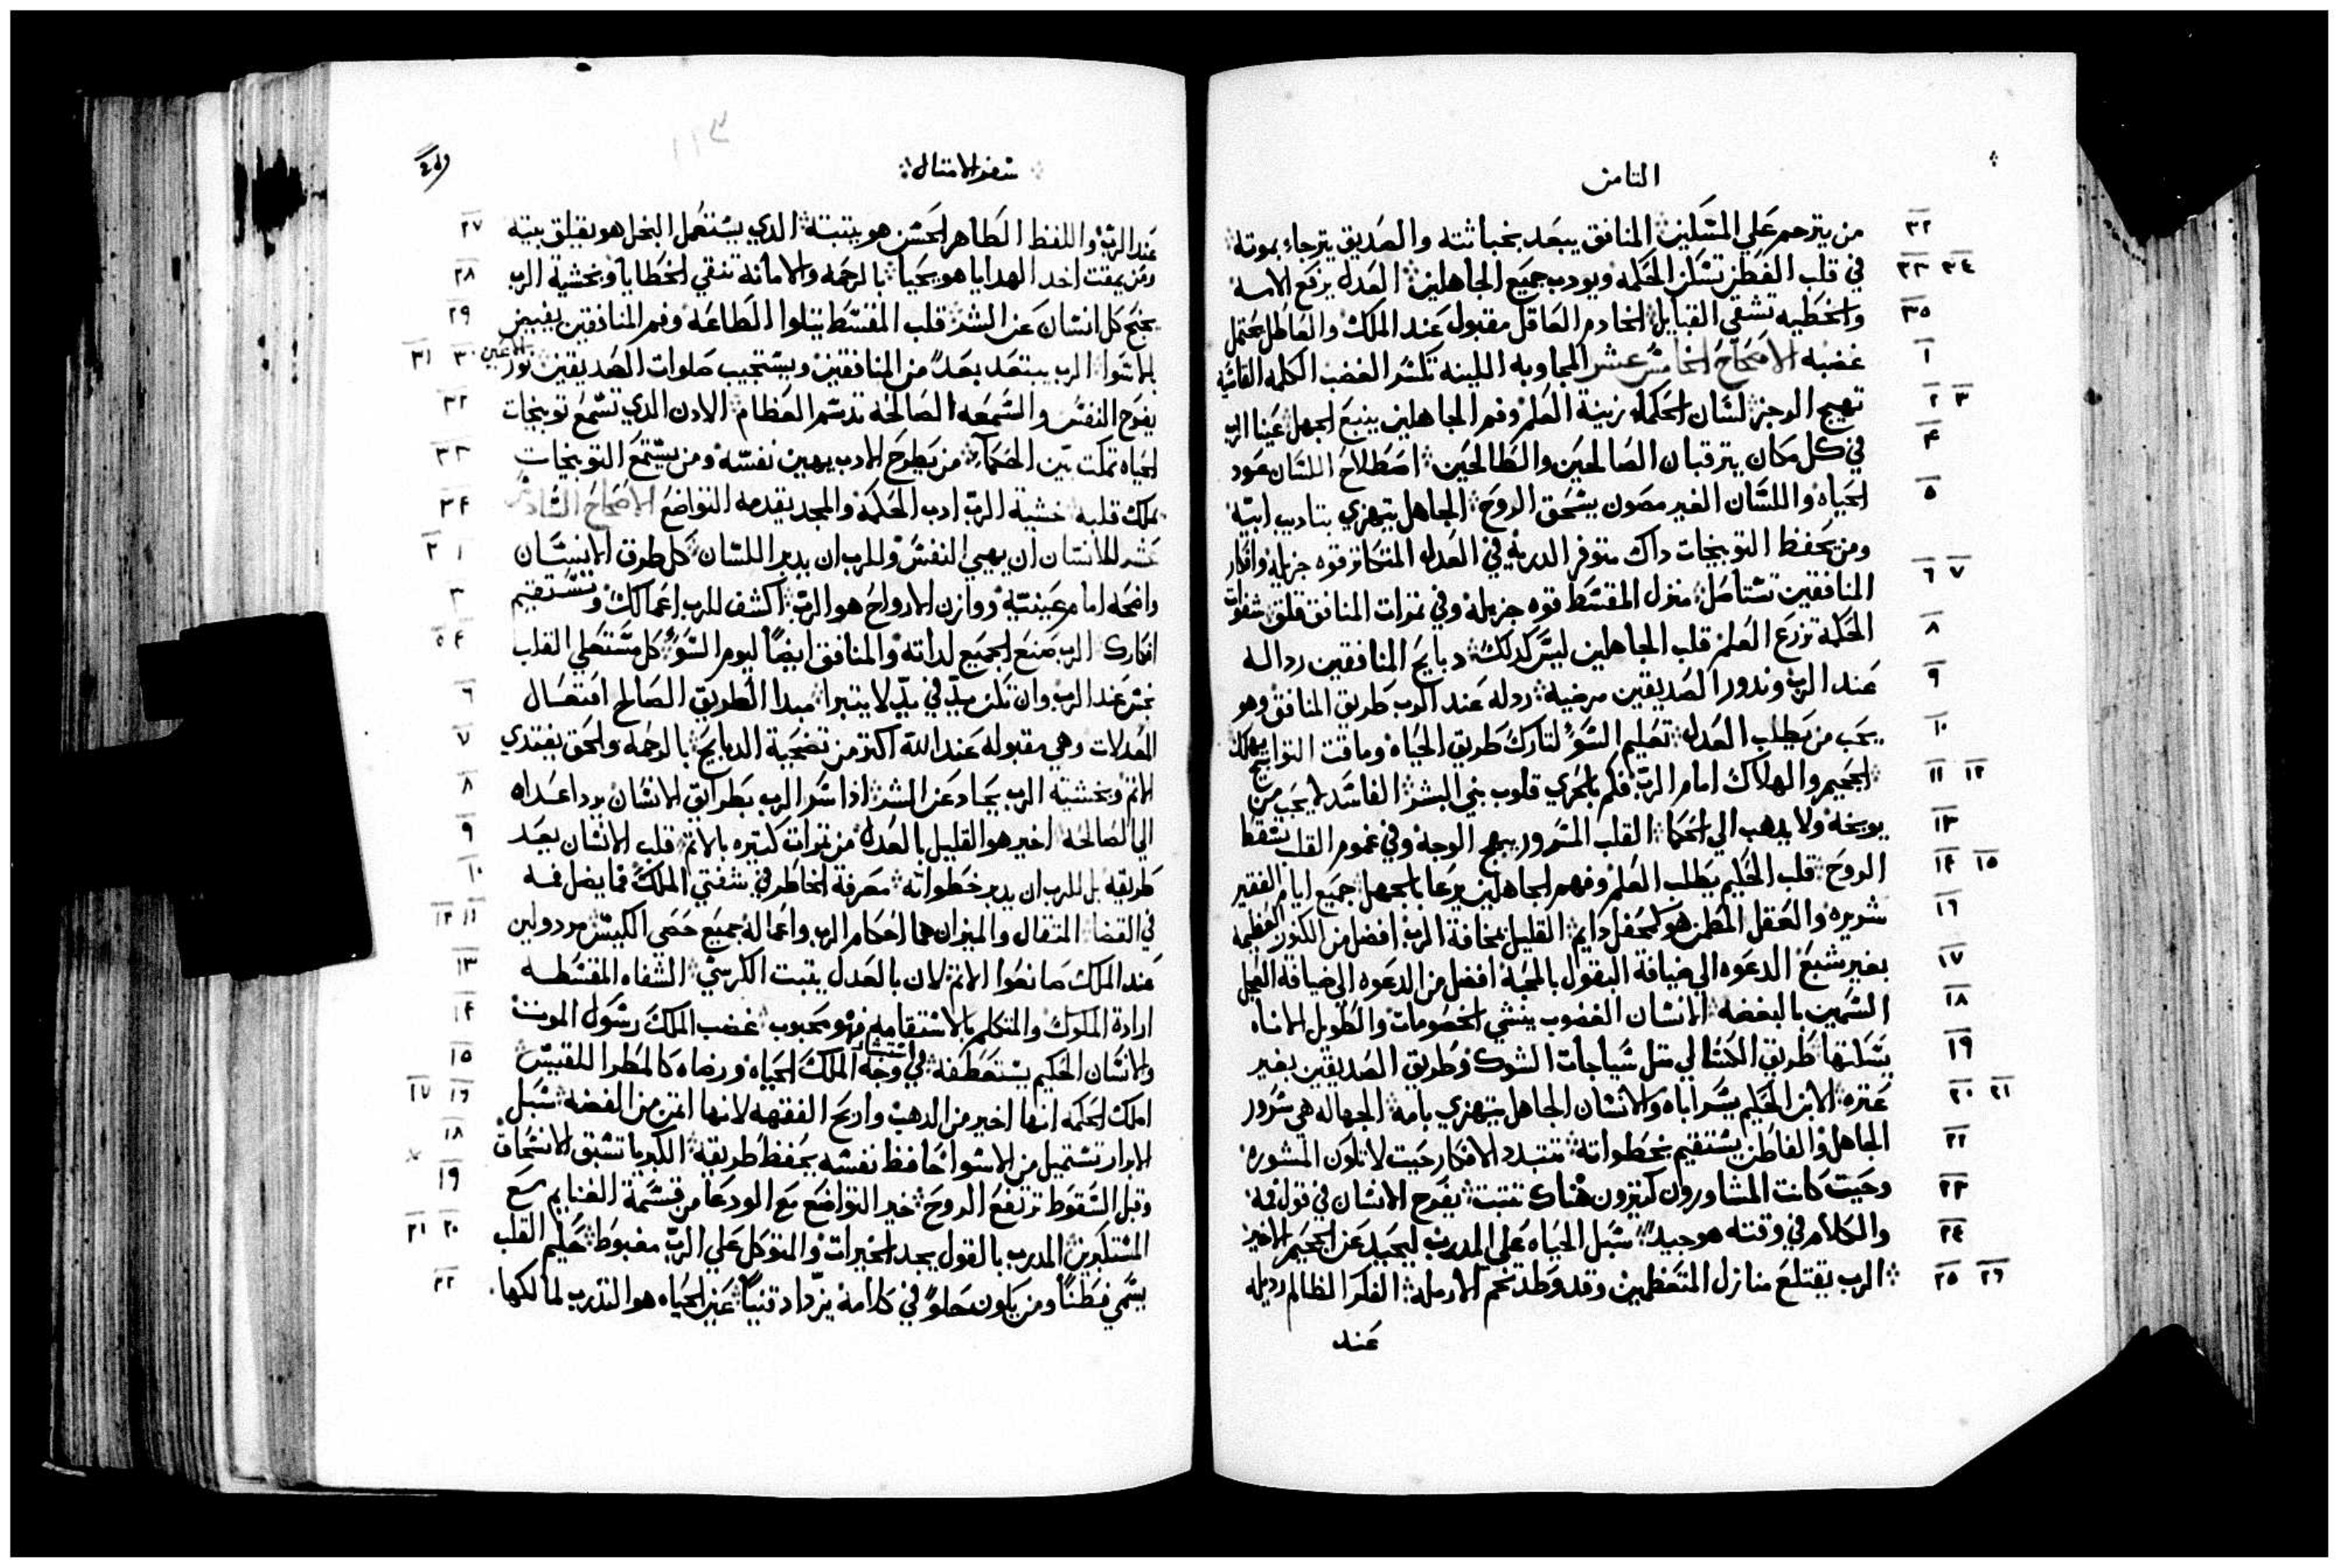 الثامن
من يترحم علي المسكين ۞ المنافق يبعد بخباثته والصديق يترجاء بموته ۞
في قلب الفطن تسكن الحكمه ويودب جميع الجاهلين ۞ العدل يرفع الامه
والخطيه تشقي القبايل ۞ الخادم العاقل مقبول عند الملك والعاطل يحتمل
غضبه الاصحاح الخامس عشر المجاوبه اللينه تكسر الغضب الكلمه القاسيه
تهيج الرجز ۞ لسان الحكماء زينة العلم وفم الجاهلين ينبع الجهل ۞ عينا الرب
في كل مكان يترقبان الصالحين والطالحين ۞ اصطلاح اللسان عود
الحياه واللسان الغير مصون يسحق الروح ۞ الجاهل يتهزي بتاديب ابيه
ومن يحفظ التوبيخات داك متوفر الدربه في العدل المتكاتر قوه جزيله وافكار
المنافقين تستاصل ۞ منزل المقسط قوه جزيله وفي تمرات المنافق قلق ۞ شفوات
الحكمة تزرع العلم قلب الجاهلين ليس كدلك ۞ دبايح المنافقين رداله
عند الرب وندور الصديقين مرضية ۞ ردله عند الرب طريق المنافق وهو
يحب من يطلب العدل ۞ تعليم السو لتارك طريق الحياه وماقت التوابيخ يهلك
۞ الجحيم والهلاك امام الرب فكم بالحري قلوب بني البشر ۞ الفاسد لا يحب من
يوبخه ولا يدهب الي الحكما ۞ القلب المسرور يبهج الوجه وفي غموم القلب يسقط
الروح ۞ قلب الحكيم يطلب العلم وفهم الجاهلين يرعا بالجهل ۞ جميع ايام الفقير
شريره والعقل المطمن هو كمحفل دايم ۞ القليل بمخافة الرب افضل من الكنوز العظيمه
بغير شبع الدعوه الي ضيافة البقول بالمحبة افضل من الدعوه الي ضيافة العجل
السمين بالبغضه ۞ الانسان الغضوب ينشي الخصومات والطويل الاناه
يسكنها ۞ طريق الكسالي متل سياجات الشوك وطريق الصديقين بغير
عتره ۞ الابن الحكيم يسر اباه والانسان الجاهل يتهزي بامه ۞ الجهاله هي سرور
الجاهل والفاطن يستقيم بخطواته ۞ تتبدد الافكار حيت لا تكون المشوره
وحيت كانت المشاورون كتيرون هناك تتبت ۞ يفرح الانسان في قول فمه
والكلام في وقته هو جيد ۞ سبل الحياه علي المدرب ليحيد عن الجحيم الاخير
۞ الرب يقتلع منازل المتعظمين وقد وطد تخم الارمله ۞ الفكر الظالم رديله
عند
سفر الامتال ۞
١١٣
عند الرب واللفظ الطاهر الحسن هو يتبته ۞ الدي يستعمل البخل هو يقلق بيته
ومن يمقت اخد الهدايا هو يحيا ۞ بالرحمه والامانة تنقي الخطايا وبخشية الرب
يجنح كل انسان عن الشر ۞ قلب المقسط يتلوا الطاعه وفم المنافقين يفيض
بالاسوا ۞ الرب يبتعد بعدا من المنافقين ويستجيب صلوات الصديقين ۞ نور الاعين
يفرح النفس والسمعه الصالحة تدسم العظام ۞ الادن الدي تسمع توبيخات
الحياه تمكت بين الحكما ۞ من يطرح الادب يهين نفسه ومن يستمع التوبيخات
يملك قلبه ۞ خشية الرب ادب الحكمة والمجد يقدمه التواضع الاصحاح السادس
عشر للانسان ان يهيي النفس وللرب ان يدبر اللسان ۞ كل طرق الانسان
واضحه امام عينيه ووازن الارواح هو الرب ۞ اكشف للرب اعمالك وتستقيم
افكارك ۞ الرب صنع الجميع لداته والمنافق ايضا ليوم السو ۞ كل مستعلي القلب
نجس عند الرب وان تكن يد في يد لا يتبرا ۞ مبدا الطريق الصالح افتعال
العدلات وهي مقبوله عند الله اكتر من تضحية الدبايح ۞ بالرحمه والحق يفتدي
الاتم وبخشية الرب يحاد عن الشر ۞ ادا سر الرب بطرايق الانسان يرد اعداه
الي الصالحه ۞ اخير هو القليل بالعدل من تمرات كتيره بالاتم ۞ قلب الانسان يعد
طريقه بل للرب ان يدبر خطواته ۞ معرفة الخاطر في شفتي الملك فما يضل فمه
في القضا ۞ المتقال والميزان هما احكام الرب واعماله جميع حصي الكيس ۞ مردولين
عند الملك صانعوا الاتم لان بالعدل يتبت الكرسي ۞ الشفاه المقسطه
ارادة الملوك والمتكلم بالاستقامه فهو محبوب ۞ غضب الملك رسول الموت
والانسان الحكيم يستعطفه ۞ في استبشار وجه الملك الحياه ورضاه كالمطر اللقيس ۞
املك الحكمه انها اخير من الدهب واربح الفقهه لانها اتمن من الفضه ۞ سبل
الابرار تستميل من الاسوا حافظ نفسه يحفظ طريقه ۞ الكبريا تسبق الانسحاق
وقبل السقوط ترتفع الروح ۞ خير التواضع مع الودعا من قسمة الغنايم مع
المستكبرين ۞ المدرب بالقول يجد الخيرات والمتوكل علي الرب مغبوط ۞ حكيم القلب
يسمي فطنا ومن يكون حلوا في كلامه يزداد قنيا ۞ عين الحياه هو التدرب لمالكها.